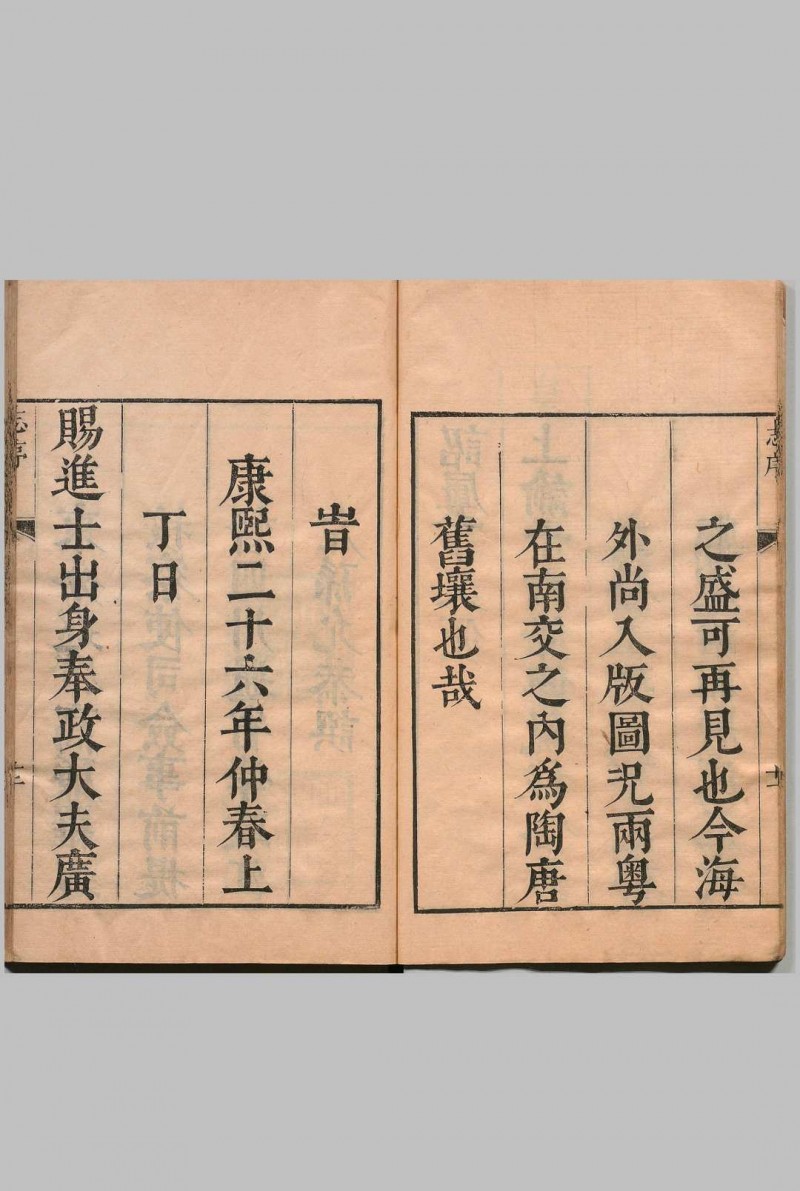 志序
之盛可再見也今海
外尚入版圖况兩粤
在南交之内爲陶唐
舊壤也哉
旹
康熙二十六年仲春上
丁日
賜進士出身奉政大夫廣
志序